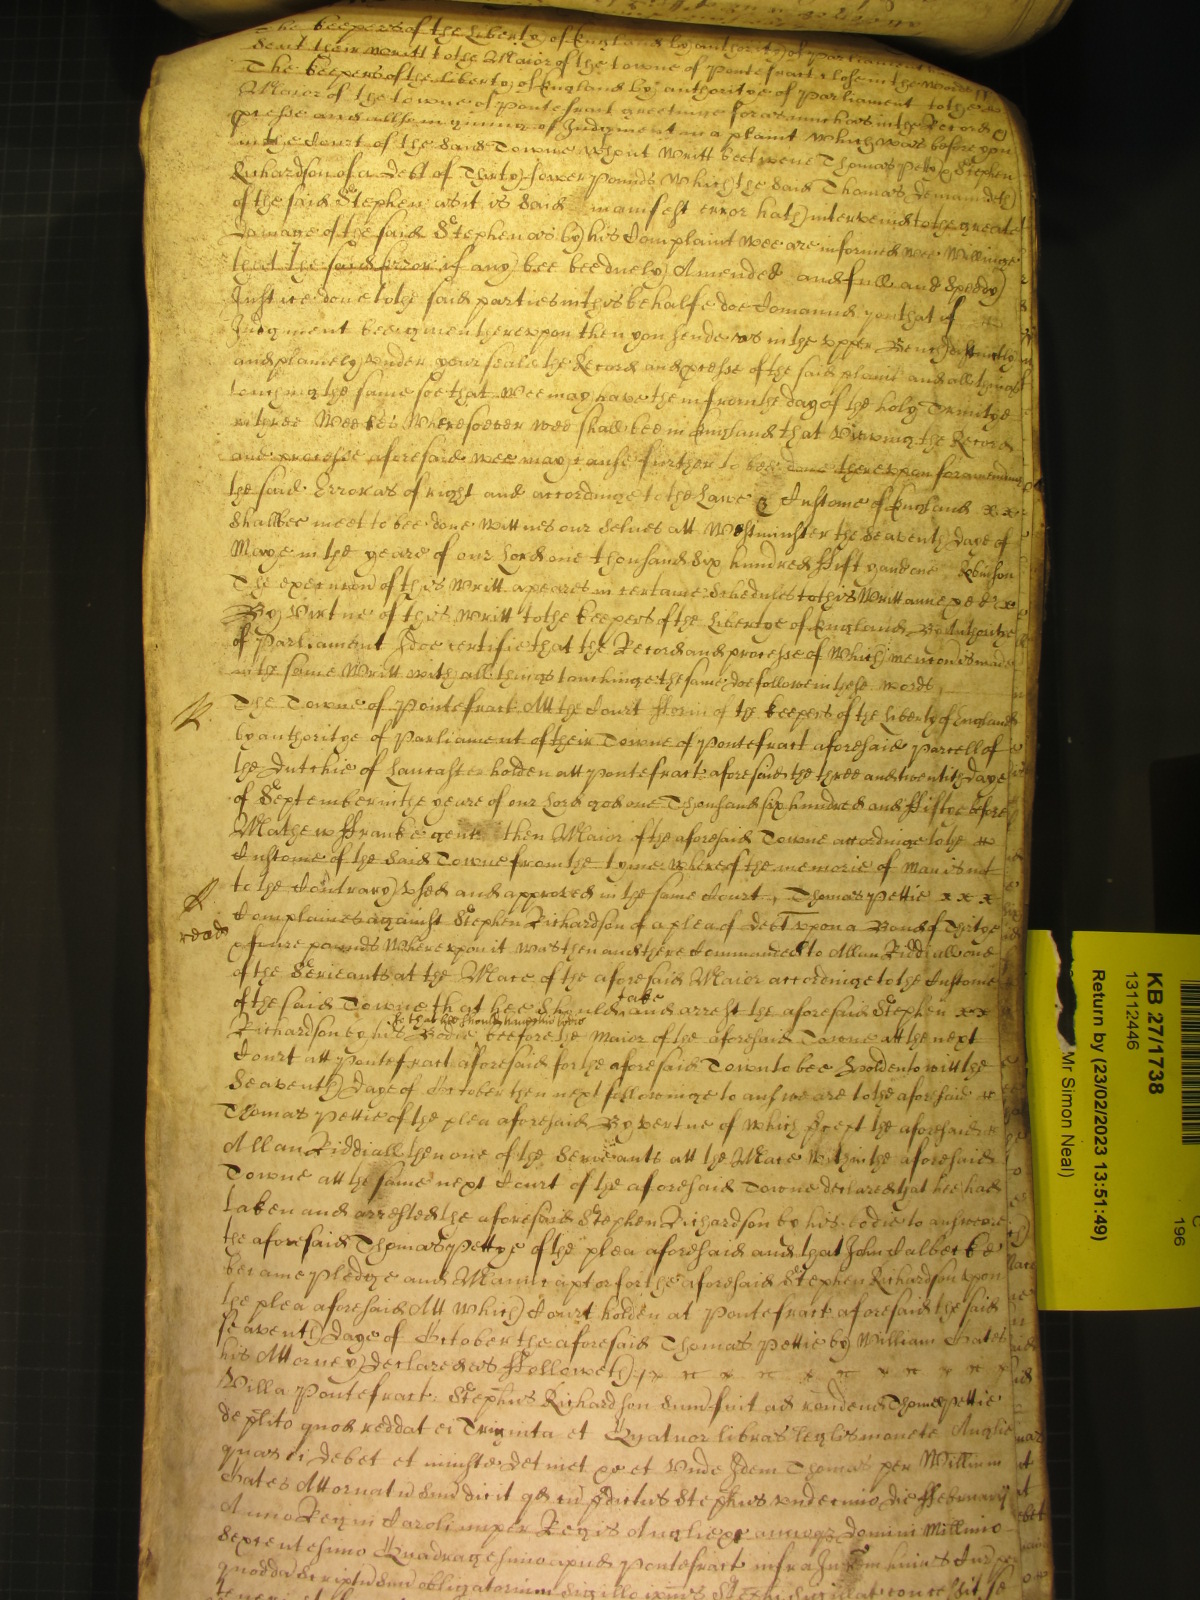 The keepers of the Liberty of England by authority of Parliament
Sent their writt to the Maior of the towne of Pontefract close in these words
The keepers of the liberty of England by authoritye of Parliament to the
Maior of the towne of Pontefract greetinge forasmuch as in the Record &
processe and allso in giveing of Judgment in a plaint which was before you
in the Court of the said Towne without writt beetweene Thomas Petty & Stephen
Richardson of a Debt of Thirty fower pounds which the said Thomas demandeth
of the said Stephen as it is said manifest error hath intervened to the greate
Damage of the said Stephen as by his Complaint wee are informed wee Willinge
that the said error if any bee bee duely Amended and full and speedy
Justice done to the said parties in this behalfe doe Comaund you that if
Judgment bee given thereupon then you send to us in the upper Bench distinctly
and plainely under your seale the Record and processe of the said plaint and all things
touching the same soe that wee may have them from the day of the holy Trinitye
in three Weekes Wheresoever wee shall bee in England that Viewing the Record
and processe aforesaid wee may cause further to bee done thereupon for amending
the said Error as of right and accordinge to the Lawe & Custome of England x x
shalbee meet to bee done Wittnes our selves att Westminster the Seaventh daye of
Maye in the yeare of our Lord one thousand six hundred Fifty and one Robinson
The execucion of this Writt apeares in certaine Scedules to this Writt annexed x
By Virtue of this writt to the keepers of the libertye of England By Authoritie
of Parliament I doe certifie that the Record and processe of which mencion is made
in the same Writt with all things touchinge the same doe follow in these words
The Towne of Pontefract Att the Court of the keepers of the Liberty of England
by authoritye of Parliament of their Towne of Pontefract aforesaid Parcell of
the Dutchie of Lancaster holden att Pontefract aforesaid the three and twentith Daye
of September in the yeare of our Lord god one Thousand six hundred and Fiftie before
Mathew Franke gent then Maior of the aforesaid Towne accordinge to the
Custome of the said Towne from the tyme whereof the memorie of man is not
to the Contrary used and approved in the same Court, Thomas Pettie x x x
Complaines against Stephen Richardson of a plea of debt upon a Band of Thirtye
read
& foure pounds Whereupon it was then and there Commanded to Allan Riddiall one
of the Serieants at the Mace of the aforesaid Maior accordinge to the Custome
of the said Towne that hee should take and arrest the aforesaid Stephen x x
Richardson by his Bodie & that hee should have him here beefore the Maior of the aforesaid Towne att the next
Court att Pontefract aforesaid for the aforesaid Town to bee holden to witt the
Seaventh daye of October then next followinge to answeare to the aforesaid
Thomas Pettie of the plea aforesaid By vertue of which precept the aforesaid
Allan Riddiall then one of the Serieants att the Mace within the aforesaid
Towne att the same next Court of the aforesaid Towne declared that hee had
taken and arrested the aforesaid Stephen Richardson by his bodie to answere
the aforesaid Thomas Pettye of the plea aforesaid and that John Calbecke
became pledge and Manucaptor for the aforesaid Stephen Richardson upon
the plea aforesaid Att which Court holden at Pontefract aforesaid the said
Seaventh Daye of October the aforesaid Thomas Pettie by William Oates
his Attorney declared as Followeth
Villa Pontefract: Stephus Richardson sum fuit ad rondend Thome Pettie
de plito quod reddat ei Triginta et Quatuor libras leglis monete Anglie
quas ei debet et iniuste detinet &c et Unde Idem Thomas per Willim
Oates Attornatu suu dicit qd cu pdictus Stephus undecimo die Februarij
Anno Regni Caroli nuper Regis Anglie &c annoq Domini Millimo
Sexcentesimo Quadragesimo apud Pontefract infra Jur huius Cur per
quoddà scriptu suu obligatorium sigillo ipius Stephi sigillat concessit se
KB 27/1738
13112446
Return by (23/02/2023 13:51:49)
Mr Simon Neal)
196